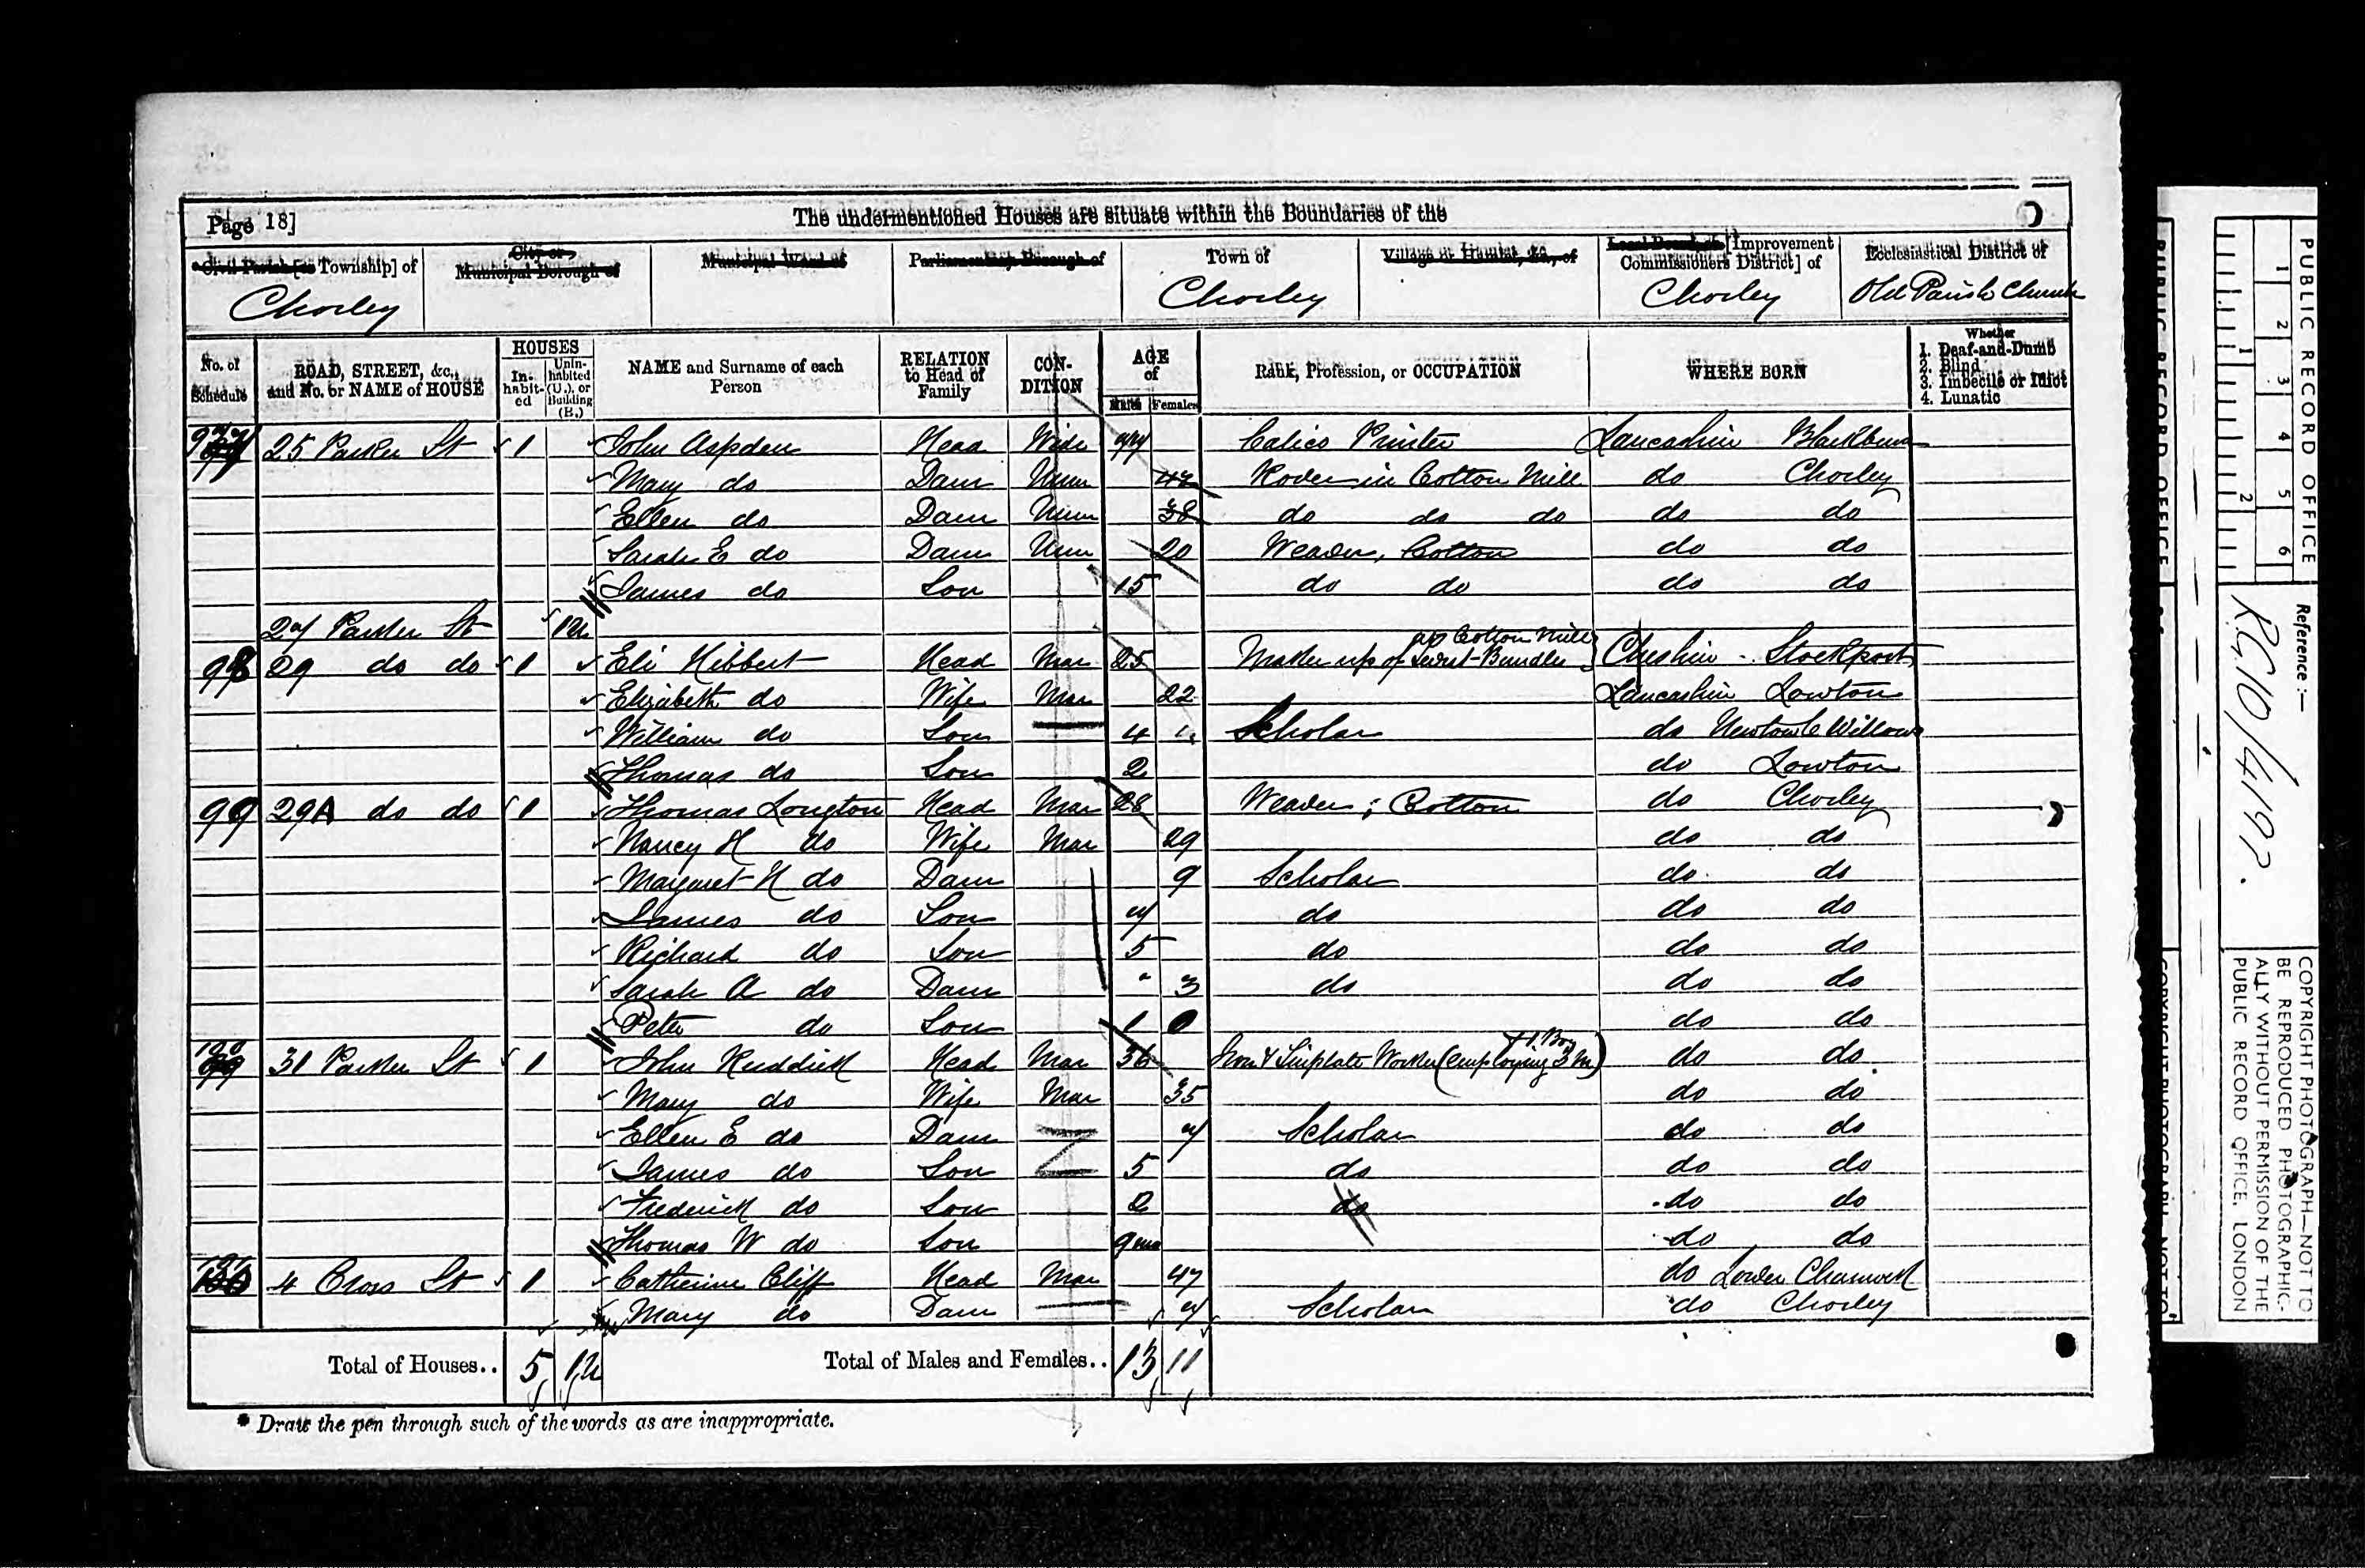 Page 18]
The undermentioned Houses are situate within the Boundaries of the
Civil Parish [or Township] of
City or Municipal Borough of
Municipal Ward of
Parliamentary Borough of
Town of
Village or Hamlet, &c., of
Local Board, or [Improvement Commissioners District] of
Ecclesiastical District of
Chorley Chorley Chorley Old Parish Church
No. of Schedule
ROAD, STREET, &c., and No. or NAME of HOUSE
HOUSES
In-habit-ed
Unin-habited (U.), or Building (B.)
NAME and Surname of each Person
RELATION to Head of Family
CON-DITION
AGE of
Males Females
Rank, Profession, or OCCUPATION
WHERE BORN
Whether
1. Deaf-and-Dumb
2. Blind
3. Imbecile or Idiot
4. Lunatic
97 25 Parker St 1 John Aspden Head Widr 77 Calico Printer Lancashire Blackburn
Mary do Daur Unm 42 Rover in Cotton Mill do Chorley
Ellen do Daur Unm 38 do do do do do
Sarah E do Daur Unm 20 Weaver, Cotton do do
James do Son 15 do do do do
27 Parker St 1U
98 29 do do 1 Eli Hibbert Head Mar 25 Maker up of Bundles Cotton Mill Cheshire Stockport
Elizabeth do Wife Mar 22 Lancashire Lowton
William do Son 4 Scholar do Newton le Willows
Thomas do Son 2 do Lowton
99 29A do do 1 Thomas Longton Head Mar 28 Weaver; Cotton do Chorley
Nancy H do Wife Mar 29 do do
Margaret H do Daur 9 Scholar do do
James do Son 7 do do do
Richard do Son 5 do do do
Sarah A do Daur 3 do do do
Peter do Son 1 do do
100 31 Parker St 1 John Ruddick Head Mar 36 Iron & Tinplate Worker (employing 3 m + 1 Boy) do do
Mary do Wife Mar 35 do do
Ellen E do Daur 7 Scholar do do
James do Son 5 do do do
Frederick do Son 2 do do do
Thomas W do Son 9 mo do do
101 4 Cross St 1 Catherine Cliff Head Mar 47 do Lower
Mary do Daur 7 Scholar do Chorley
Total of Houses.. 5 1U Total of Males and Females.. 13 11
* Draw the pen through such of the words as are inappropriate.
PUBLIC RECORD OFFICE
1 2 3 4 5 6
1 2
Reference :—
R.G. 10/4197.
COPYRIGHT PHOTOGRAPH—NOT TO
BE REPRODUCED PHOTOGRAPHIC-
ALLY WITHOUT PERMISSION OF THE
PUBLIC RECORD OFFICE, LONDON